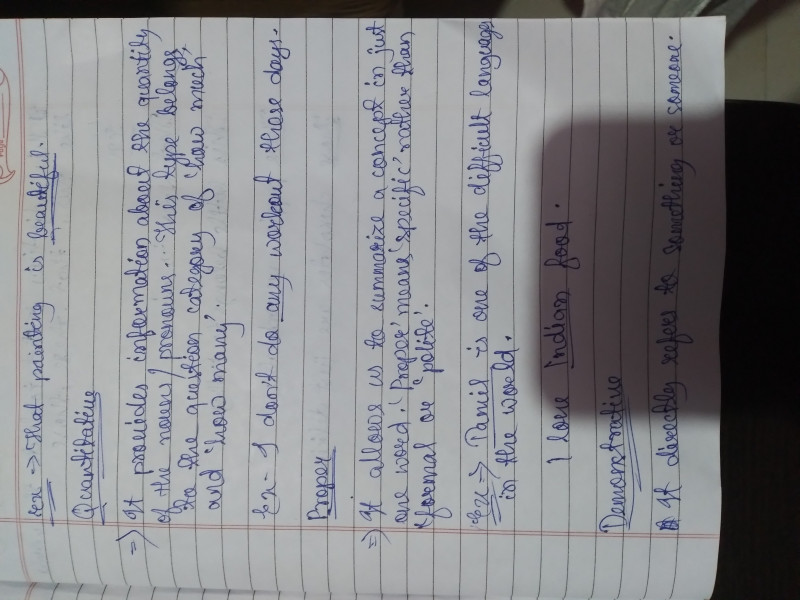 Ex => That painting is beautiful.
Quantitative
=> It provides information about the quantity
of the nouns / pronouns. This type belongs
to the question category of 'how much'
and 'how many'.
Ex - I don't do any workout these days.
Proper
=> It allows us to summarize a concept in just
one word. 'Proper' means 'specific' rather than
'formal' or 'polite'.
Ex => Tamil is one of the difficult language
in the world.
I love Indian food.
Demonstrative
It directly refers to something or someone.